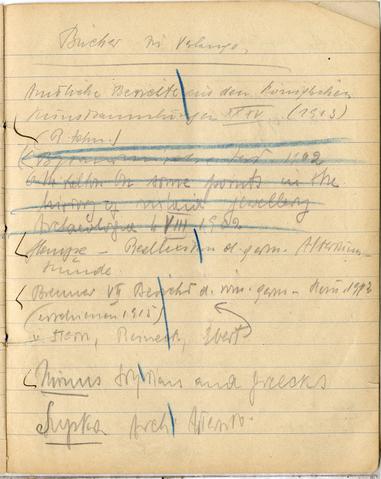 Bücher in Verlange.
Amtliche Berichte aus den Königlichen
Kunstsammlungen XXXV (1913)
(R. Zahn.)
1902
on some points in the
history of inlaid jewellery
Archaeologia LVIII 1902
Hampe – Reallexikon d. germ. Altertums-
kunde.
Brenner VII Bericht d. röm.-germ. Kom. 1912
(erschienen 1915)
v. Stern, Reineck, Ebert
Minns Scythians and Greeks
Supka Arch. Értesítő.